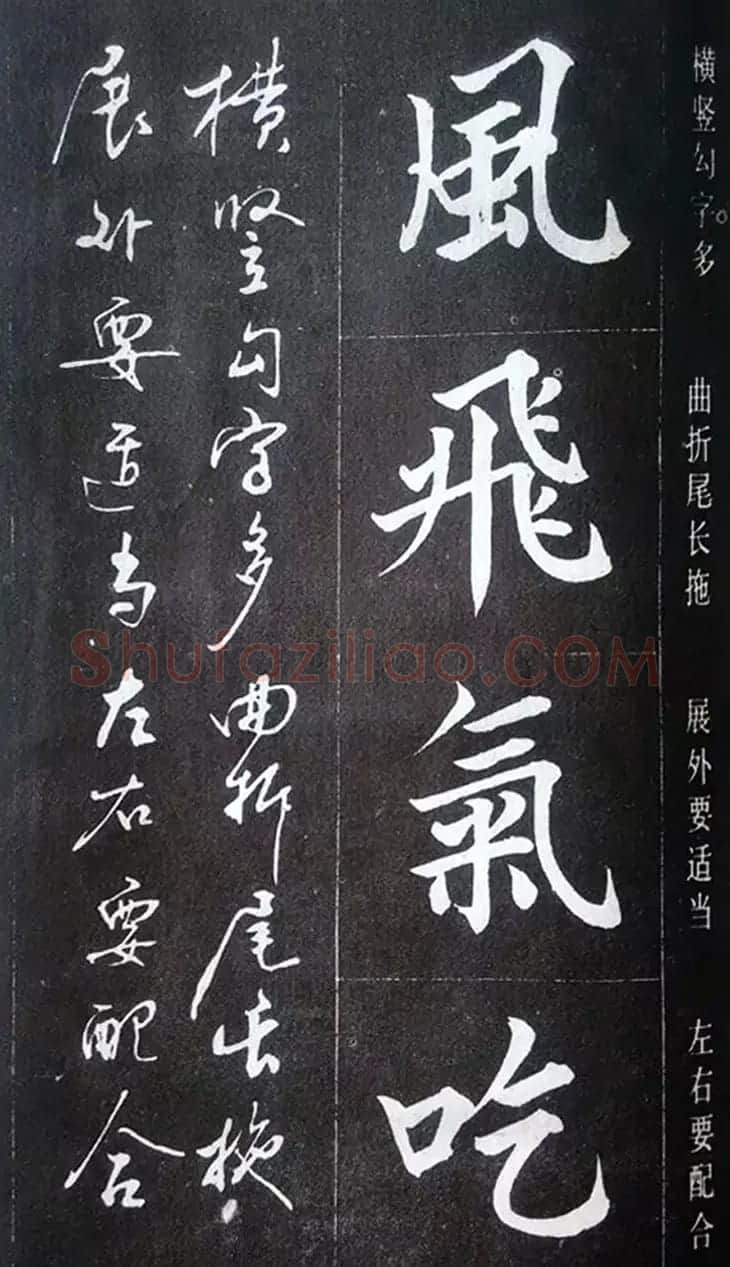 横竖勾字多 曲折尾长拖 展外要适当 左右要配合
風飛氣吃
横竖勾字多 曲折尾长拖
展外要适当 左右要配合
Shufaziliao.COM